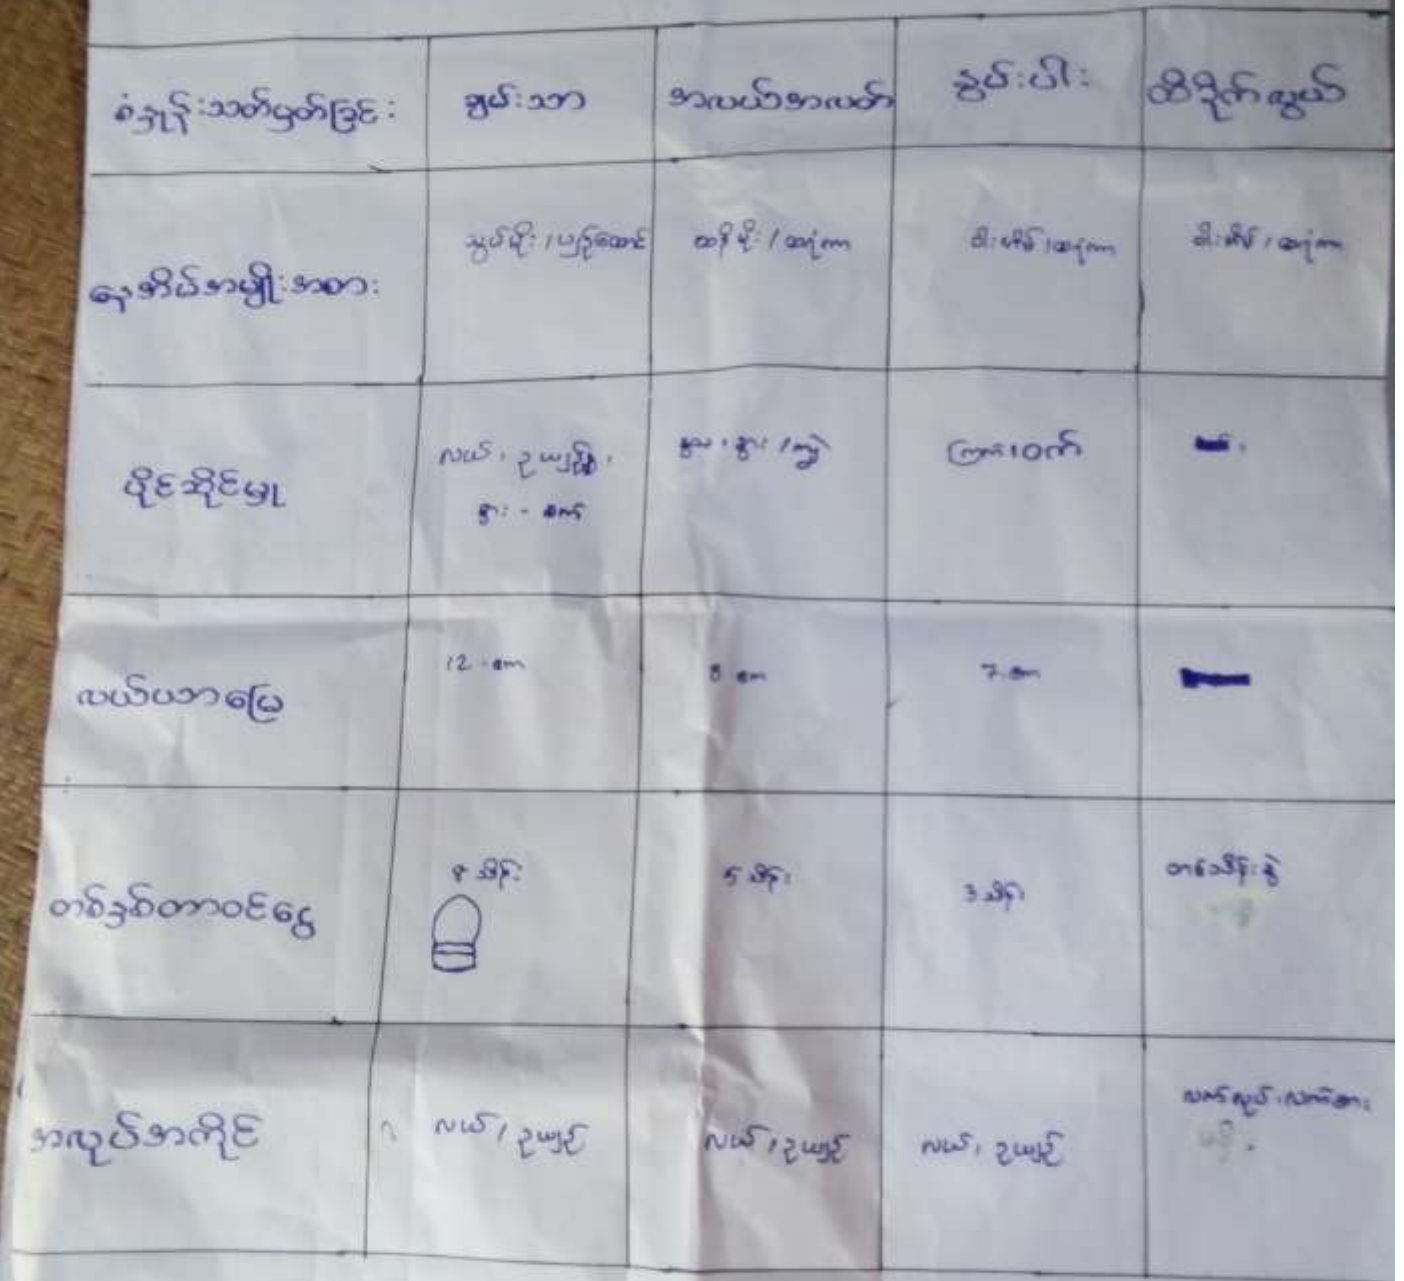 စံနှုန်းသတ်မှတ်ခြင်း ချမ်းသာ အလယ်အလတ် နွမ်းပါး ထိခိုက်လွယ်
နေအိမ်အမျိုးအစား သွပ်မိုး / ပျဉ်ထောင် ထရံကာ ဝါးထရံကာ
ပိုင်ဆိုင်မှု လယ်၊ ဥယျာဉ်၊ နွား၊ ကျွဲ ကြက်၊ ဝက်
နွား - စက်
လယ်ယာမြေ 12 ဧက 8 ဧက 7 ဧက
တစ်နှစ်တာဝင်ငွေ 8 သိန်း 5 သိန်း 3 သိန်း တစ်သိန်းခွဲ
အလုပ်အကိုင် လယ်၊ ဥယျာဉ် လယ်၊ ဥယျာဉ် လယ်၊ ဥယျာဉ် လက်လုပ်၊ လက်စား